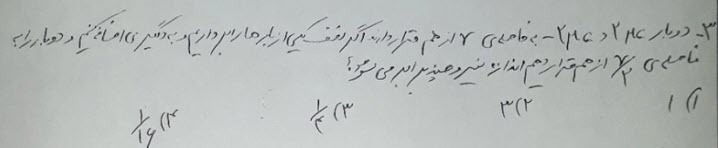 ۳- دو بار ۲μc و ۲μc- به فاصله‌ی r از هم قرار دارند اگر نصف یکی از بارها را برداریم و به دیگری اضافه کنیم و دو بار را به
فاصله‌ی r/۲ از هم قرار دهیم اندازه نیرو چند برابر می شود؟
۱) ۱ ۲) ۳ ۳) ۱/۴ ۴) ۱/۱۶